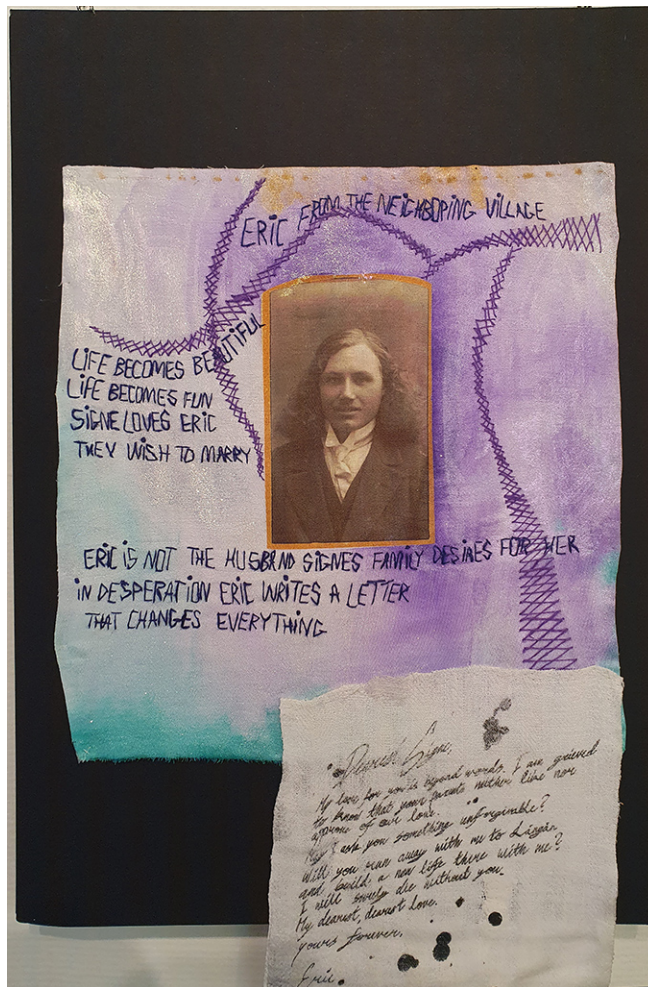 ERIC FROM THE NEIGHBORING VILLAGE
LIFE BECOMES BEAUTIFUL
LIFE BECOMES FUN
SIGNE LOVES ERIC
THEY WISH TO MARRY
ERIC IS NOT THE HUSBAND SIGNES FAMILY DESIRES FOR HER
IN DESPERATION ERIC WRITES A LETTER
THAT CHANGES EVERYTHING
Dearest Signe,
My love for you is beyond words. I am grieved
to know that your parents neither like nor
approve of our love.
May I ask you something unforgivable?
Will you run away with me to Lingån
and build a new life there with me?
I will surely die without you.
My dearest, dearest love.
yours forever,
Eric.